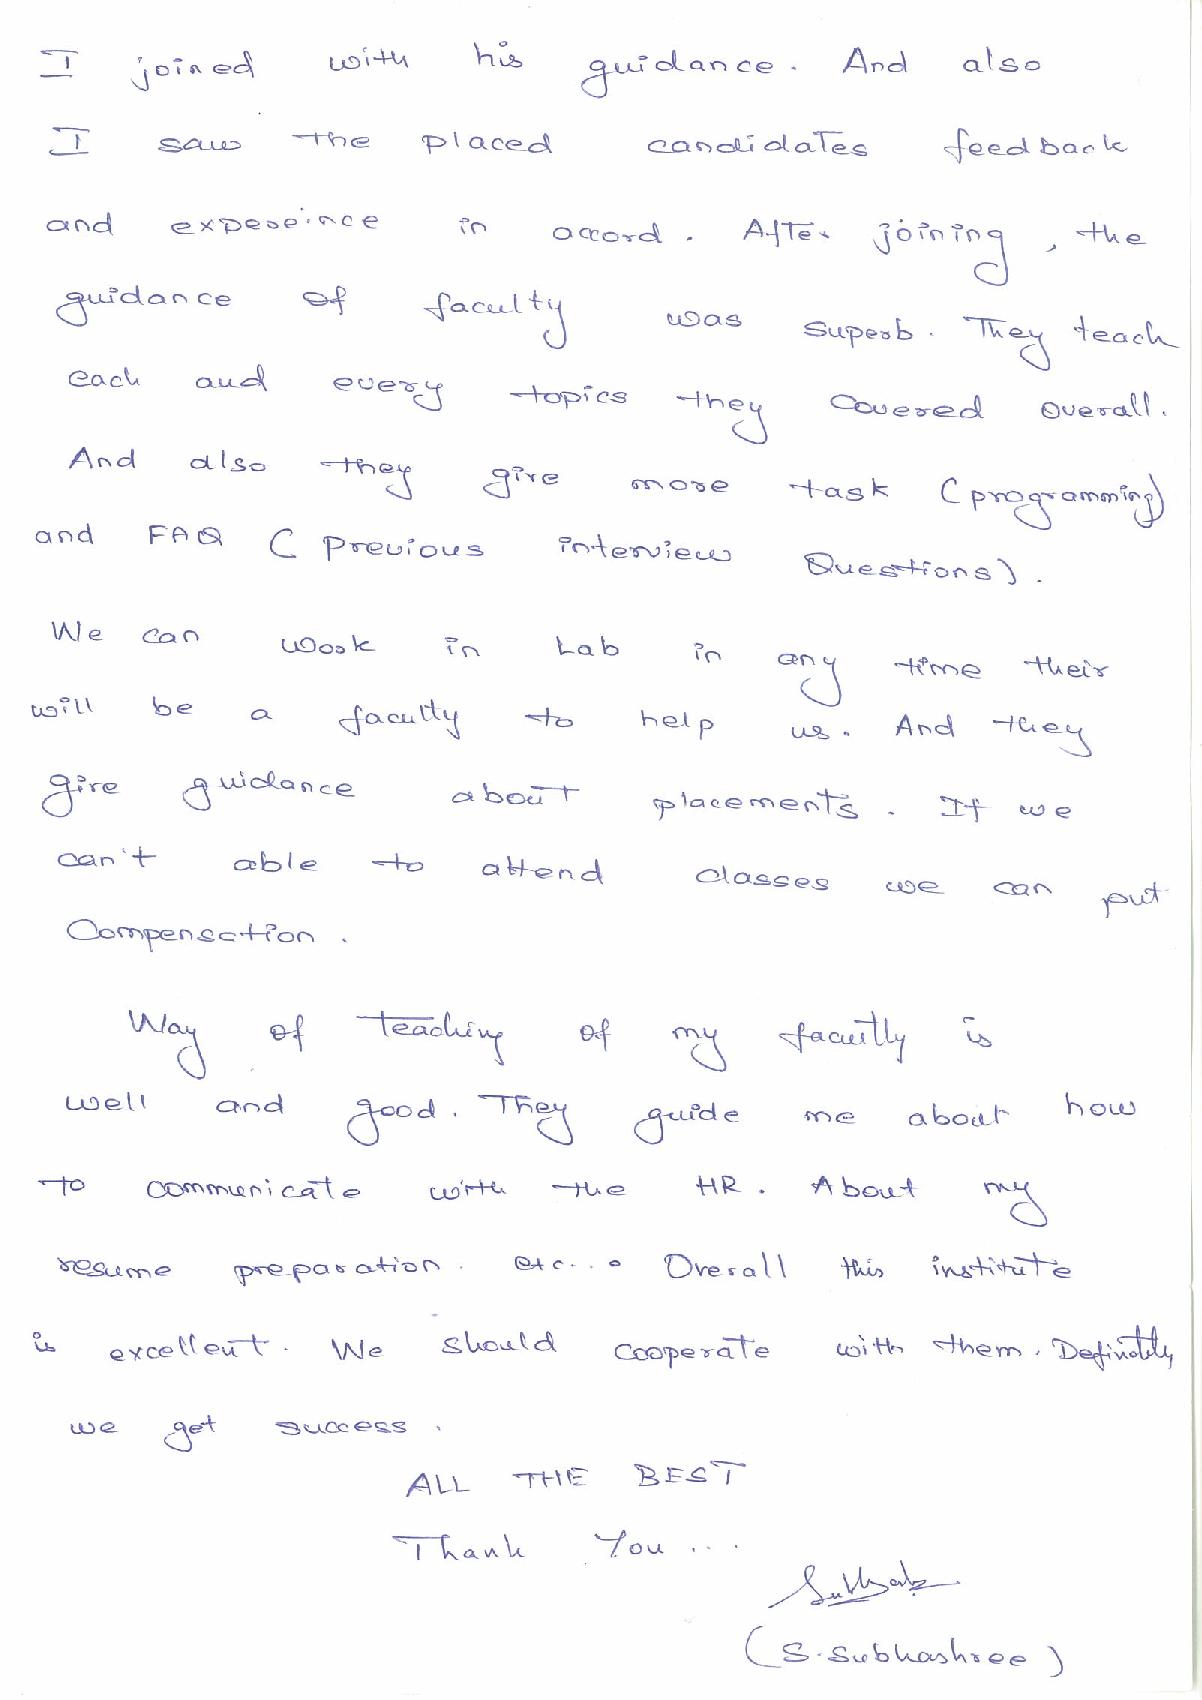 I joined with his guidance. And also
I saw the placed candidates feedback
and expereince in accord. After joining, the
guidance of faculty was superb. They teach
each and every topics they covered overall.
And also they give more task (programming)
and FAQ (Previous interview Questions).
We can work in Lab in any time their
will be a faculty to help us. And they
give guidance about placements. If we
can't able to attend classes we can put
Compensation.
Way of teaching of my facultly is
well and good. They guide me about how
to communicate with the HR. About my
resume preparation. etc... Overall this institute
is excellent. We should cooperate with them. Definately
we get success.
ALL THE BEST
Thank You...
(S. Subhashree)